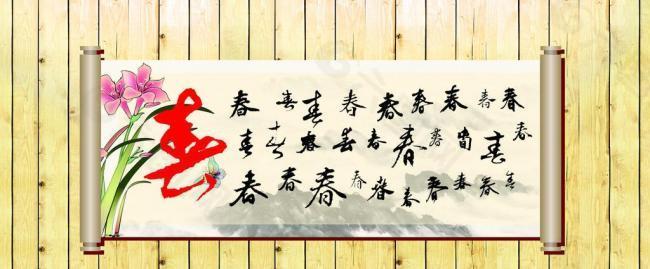 春
春 春 春 春 春 春 春 春 春
春 春 春 春 春 春 春 春 春
春 春 春 春 春 春 春 春 春 春